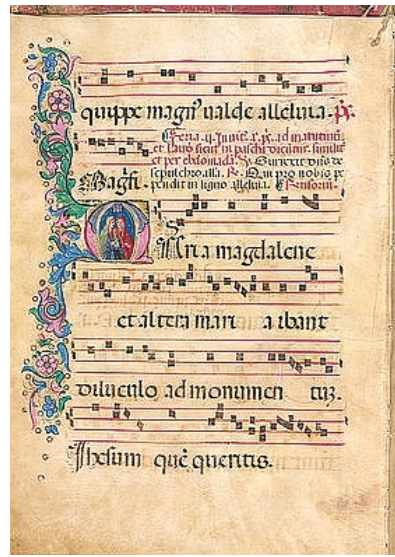 quippe magñ ualde alleluia. p̃s.
Feria .ij. Inuit. x. p̃x. ad matutinũ
et laud sicut in pascha dicitur. similit̃
et per ebdomadã. Ꝟ. Surrexit dñs de
sepulchro alla. ℞. Qui pro nobis pe
Magñ. pendit in ligno alleluia.
Maria magdalene
et altera mari a ibant
diluculo ad monumen tuȝ.
Jhesum quẽ queritis.